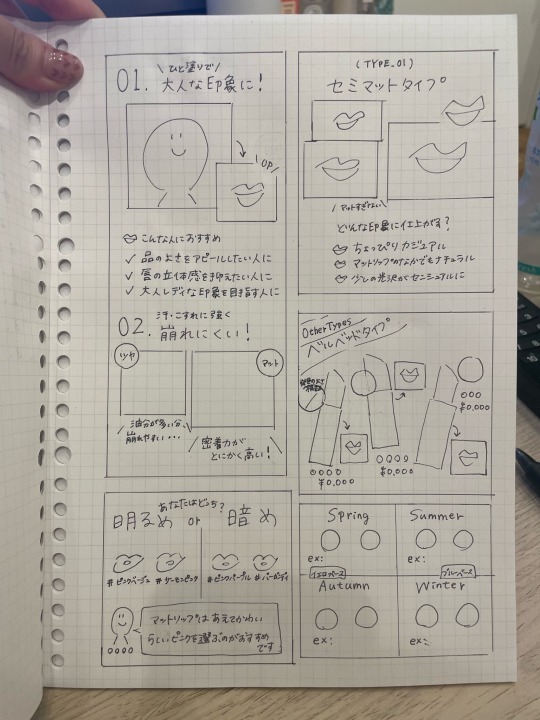 ＼ひと塗りで／
01. 大人な印象に！
UP!
こんな人におすすめ
✓ 品のよさをアピールしたい人に
✓ 唇の立体感を抑えたい人に
✓ 大人レディな印象を目指す人に
汗・こすれに強く
02. 崩れにくい！
ツヤ
マット
油分が多い分、
崩れやすい・・・
密着力が
とにかく高い！
あなたはどっち？
明るめ or 暗め
#ピンクベージュ #サーモンピンク #ピンクパープル #バーガンディ
マットリップはあえてかわい
らしいピンクを選ぶのがおすすめ
です
(TYPE.01)
セミマットタイプ
＼マットすぎない／
どんな印象に仕上がる？
ちょっぴりカジュアル
マットリップのなかでもナチュラル
少しの光沢がセンシュアルに
Other Types
ベルベットタイプ
○○○○
¥0,000
○○○○
¥0,000
○○○
¥0,000
Spring
ex:
Summer
ex:
イエローベース
ブルーベース
Autumn
ex:
Winter
ex: